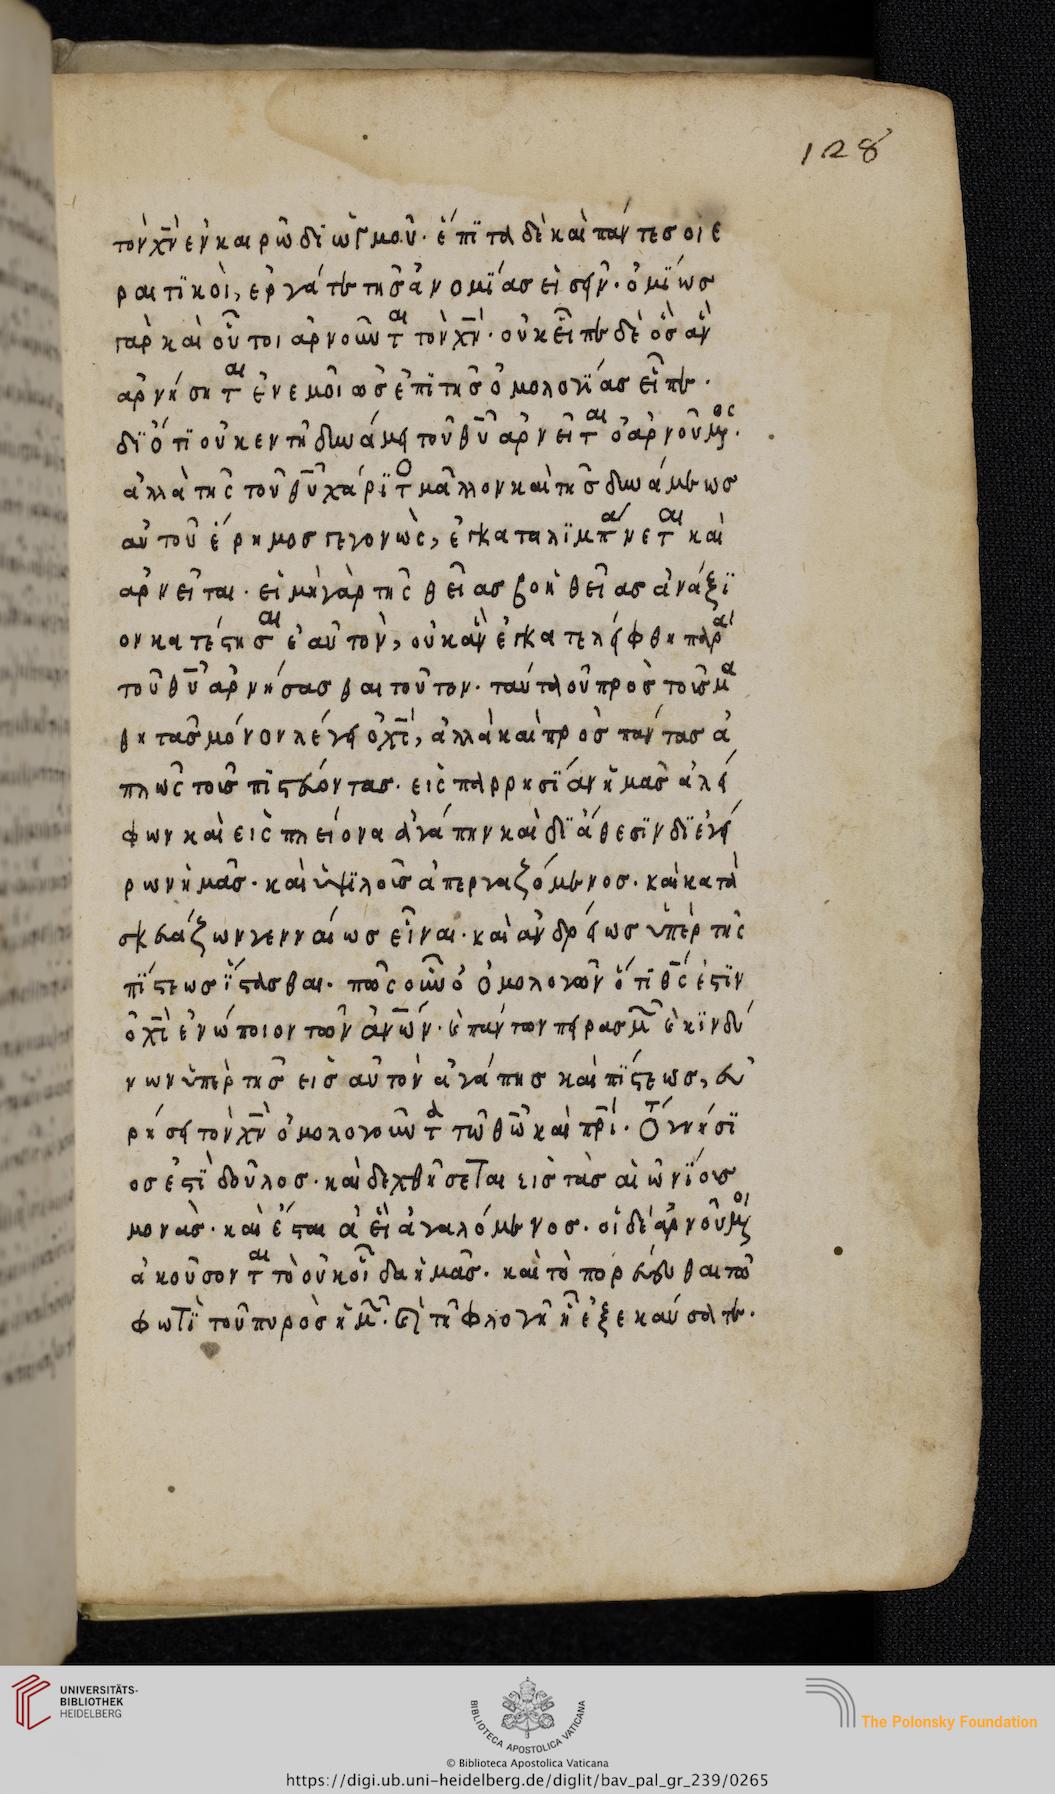 128
τὸν χ̅ν̅ ἐν καιρῶ διωγμοῦ· ἔπιτα δὲ καὶ πάντες οἱ ε
ρατικοὶ, εργάτε τῆς ἀνομίας εἰσήν· ὁμίως
γὰρ καὶ οὗτοι ἀρνοῦντ̅αι τὸν χ̅ν̅· οὐκ εἶπε δὲ ὃς ἂν
ἀρνήσητ̅αι ἐν εμοὶ ως ἐπὶ τῆς ὁμολογίας εἶπε·
διότι οὐκ εν τῆ δυνάμη τοῦ θ̅υ̅ ἀρνεῖτ̅αι ὁ ἀρνούμενος·
ἀλλὰ τῆς τοῦ θ̅υ̅ χάριτος μᾶλλον καὶ τῆς δυνάμεως
αὐτοῦ ἔρημος γεγονὼς, ἐγκαταλιμπάνετ̅αι καὶ
ἀρνεῖται· εἰ μὴ γὰρ τῆς θείας βοηθείας ἀνάξι
ον κατέστησ̅αι ἑαυτὸν, οὐκ ἂν ἐγκατελήφθη παρὰ
τοῦ θ̅υ̅ ἀρνήσασθαι τοῦτον· ταύτα οὖν πρὸς τοὺς μα
θητὰς μόνον λέγη ὀχὶ, ἀλλὰ καὶ πρὸς πάντας ἁ
πλῶς τοὺς πιστεύοντας· εἰς παρρησίαν ἡμᾶς ἀλή
φων καὶ εἰς πλείονα ἀγάπην καὶ διάθεσιν διεγή
ρων ἡμᾶς· καὶ ὑψιλοὺς ἀπεργαζόμενος· καὶ κατα
σκευάζων γενναίως εἶναι· καὶ ἀνδρήως ὑπὲρ τῆς
πίστεως ἵστασθαι· πῶς οὖν ὁ ὁμολογῶν ὅτι θ̅ς̅ ἐστὶν
ὀχὶ ἐνώποιον τῶν ἀν̅ων· ἐπάντων πηρασμ̅ ἐκινδύ
νων ὑπὲρ τῆς εἰς αὐτὸν ἀγάπης καὶ πίστεως, εὐ
ρήση τὸν χ̅ν̅ ὁμολογοῦντ̅α τῶ θ̅ω̅ καὶ π̅ρ̅ι̅· ὅτ γνήσι
ος ἐστὶ δοῦλος· καὶ δεχθήσεται εἰς τὰς αἰωνίους
μονὰς· καὶ ἔσται ἀεὶ ἀγαλόμενος· οἱ δὲ ἀρνούμενοι
ἀκοῦσοντ̅αι τὸ οὐκ οἶδα ἡμᾶς· καὶ τὸ πορεύεσθαι τῶ
φωτὶ τοῦ πυρὸς ἡμ̅· καὶ τῆ φλογῆ ἣ ἐξεκαύσατε·
UNIVERSITÄTS-
BIBLIOTHEK
HEIDELBERG
BIBLIOTECA APOSTOLICA VATICANA
The Polonsky Foundation
© Biblioteca Apostolica Vaticana
https://digi.ub.uni-heidelberg.de/diglit/bav_pal_gr_239/0265